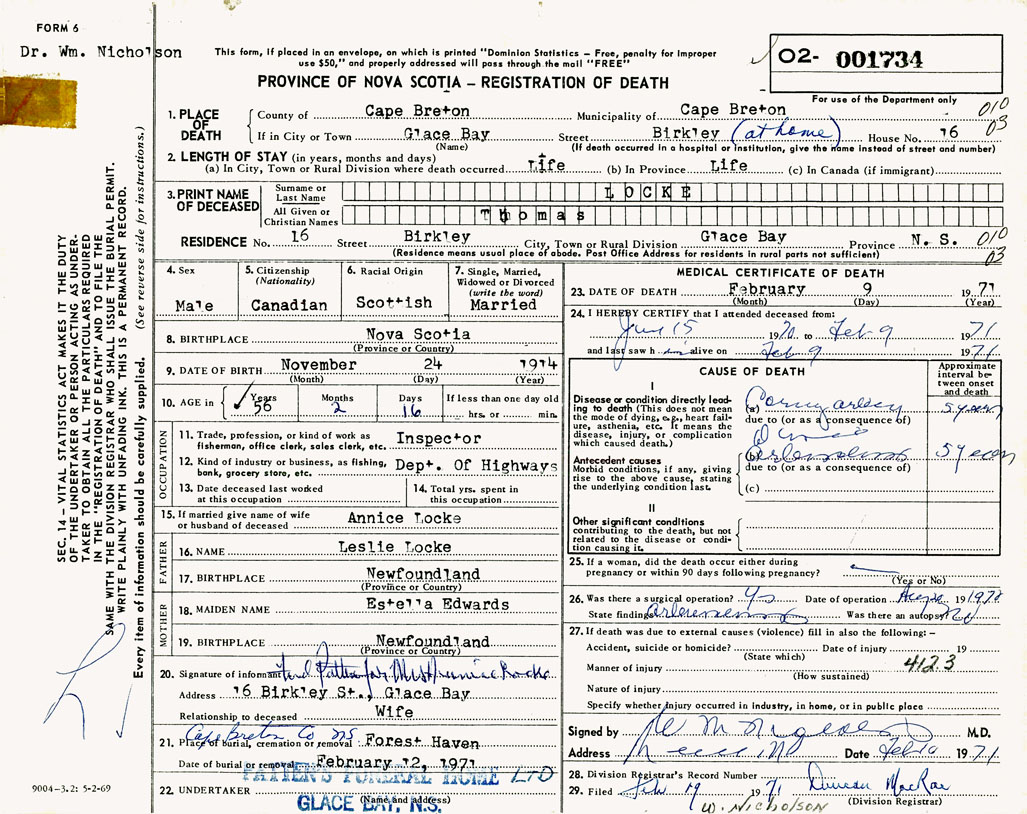 FORM 6
Dr. Wm. Nicholson
This form, if placed in an envelope, on which is printed "Dominion Statistics – Free, penalty for improper
use $50," and properly addressed will pass through the mail "FREE"
PROVINCE OF NOVA SCOTIA – REGISTRATION OF DEATH
O2- 001734
For use of the Department only
1. PLACE OF DEATH
County of Cape Breton Municipality of Cape Breton 010
If in City or Town Glace Bay Street Birkley (at home) House No. 16 03
(Name) (If death occurred in a hospital or institution, give the name instead of street and number)
2. LENGTH OF STAY (in years, months and days)
(a) In City, Town or Rural Division where death occurred Life (b) In Province Life (c) In Canada (if immigrant)
3. PRINT NAME OF DECEASED
Surname or Last Name LOCKE
All Given or Christian Names Thomas
RESIDENCE No. 16 Street Birkley City, Town or Rural Division Glace Bay Province N. S. 010
(Residence means usual place of abode. Post Office Address for residents in rural parts not sufficient) 03
4. Sex
Male
5. Citizenship
(Nationality)
Canadian
6. Racial Origin
Scottish
7. Single, Married,
Widowed or Divorced
(write the word)
Married
8. BIRTHPLACE Nova Scotia
(Province or Country)
9. DATE OF BIRTH November 24 1914
(Month) (Day) (Year)
10. AGE in Years Months Days If less than one day old
56 2 16 hrs. or min.
OCCUPATION
11. Trade, profession, or kind of work as
fisherman, office clerk, sales clerk, etc. Inspector
12. Kind of industry or business, as fishing,
bank, grocery store, etc. Dept. Of Highways
13. Date deceased last worked
at this occupation
14. Total yrs. spent in
this occupation
15. If married give name of wife
or husband of deceased Annice Locke
FATHER
16. NAME Leslie Locke
17. BIRTHPLACE Newfoundland
(Province or Country)
MOTHER
18. MAIDEN NAME Estella Edwards
19. BIRTHPLACE Newfoundland
(Province or Country)
20. Signature of informant
Address 16 Birkley St., Glace Bay
Relationship to deceased Wife
Cape Breton Co NS
21. Place of burial, cremation or removal Forest Haven
Date of burial or removal February 12, 1971
PATTEN'S FUNERAL HOME LTD
22. UNDERTAKER (Name and address)
GLACE BAY, N.S.
9004-3.2: 5-2-69
MEDICAL CERTIFICATE OF DEATH
23. DATE OF DEATH February 9 1971
(Month) (Day) (Year)
24. I HEREBY CERTIFY that I attended deceased from:
15 1970 to Feb 9 1971
and last saw h im alive on Feb 9 1971
CAUSE OF DEATH
Approximate interval between onset and death
I
Disease or condition directly leading to death (This does not mean the mode of dying, e.g., heart failure, asthenia, etc. It means the disease, injury, or complication which caused death.)
(a) 5 years
due to (or as a consequence of)
Antecedent causes
Morbid conditions, if any, giving rise to the above cause, stating the underlying condition last.
(b) 5 years
due to (or as a consequence of)
(c)
II
Other significant conditions
contributing to the death, but not related to the disease or condition causing it.
25. If a woman, did the death occur either during
pregnancy or within 90 days following pregnancy?
(Yes or No)
26. Was there a surgical operation? Date of operation 19
State findings Was there an autopsy
27. If death was due to external causes (violence) fill in also the following: –
Accident, suicide or homicide? Date of injury 19
(State which)
Manner of injury 4123
(How sustained)
Nature of injury
Specify whether injury occurred in industry, in home, or in public place
Signed by M.D.
Address Date Feb 10 1971
28. Division Registrar's Record Number
29. Filed Feb. 19 1971 Duncan MacRae
(Division Registrar)
W. NICHOLSON
SEC. 14 – VITAL STATISTICS ACT MAKES IT THE DUTY
OF THE UNDERTAKER OR PERSON ACTING AS UNDER-
TAKER TO OBTAIN ALL THE PARTICULARS REQUIRED
IN THE "REGISTRATION OF DEATH" AND TO FILE THE
SAME WITH THE DIVISION REGISTRAR WHO SHALL ISSUE THE BURIAL PERMIT.
WRITE PLAINLY WITH UNFADING INK. THIS IS A PERMANENT RECORD.
Every item of information should be carefully supplied. (See reverse side for instructions.)